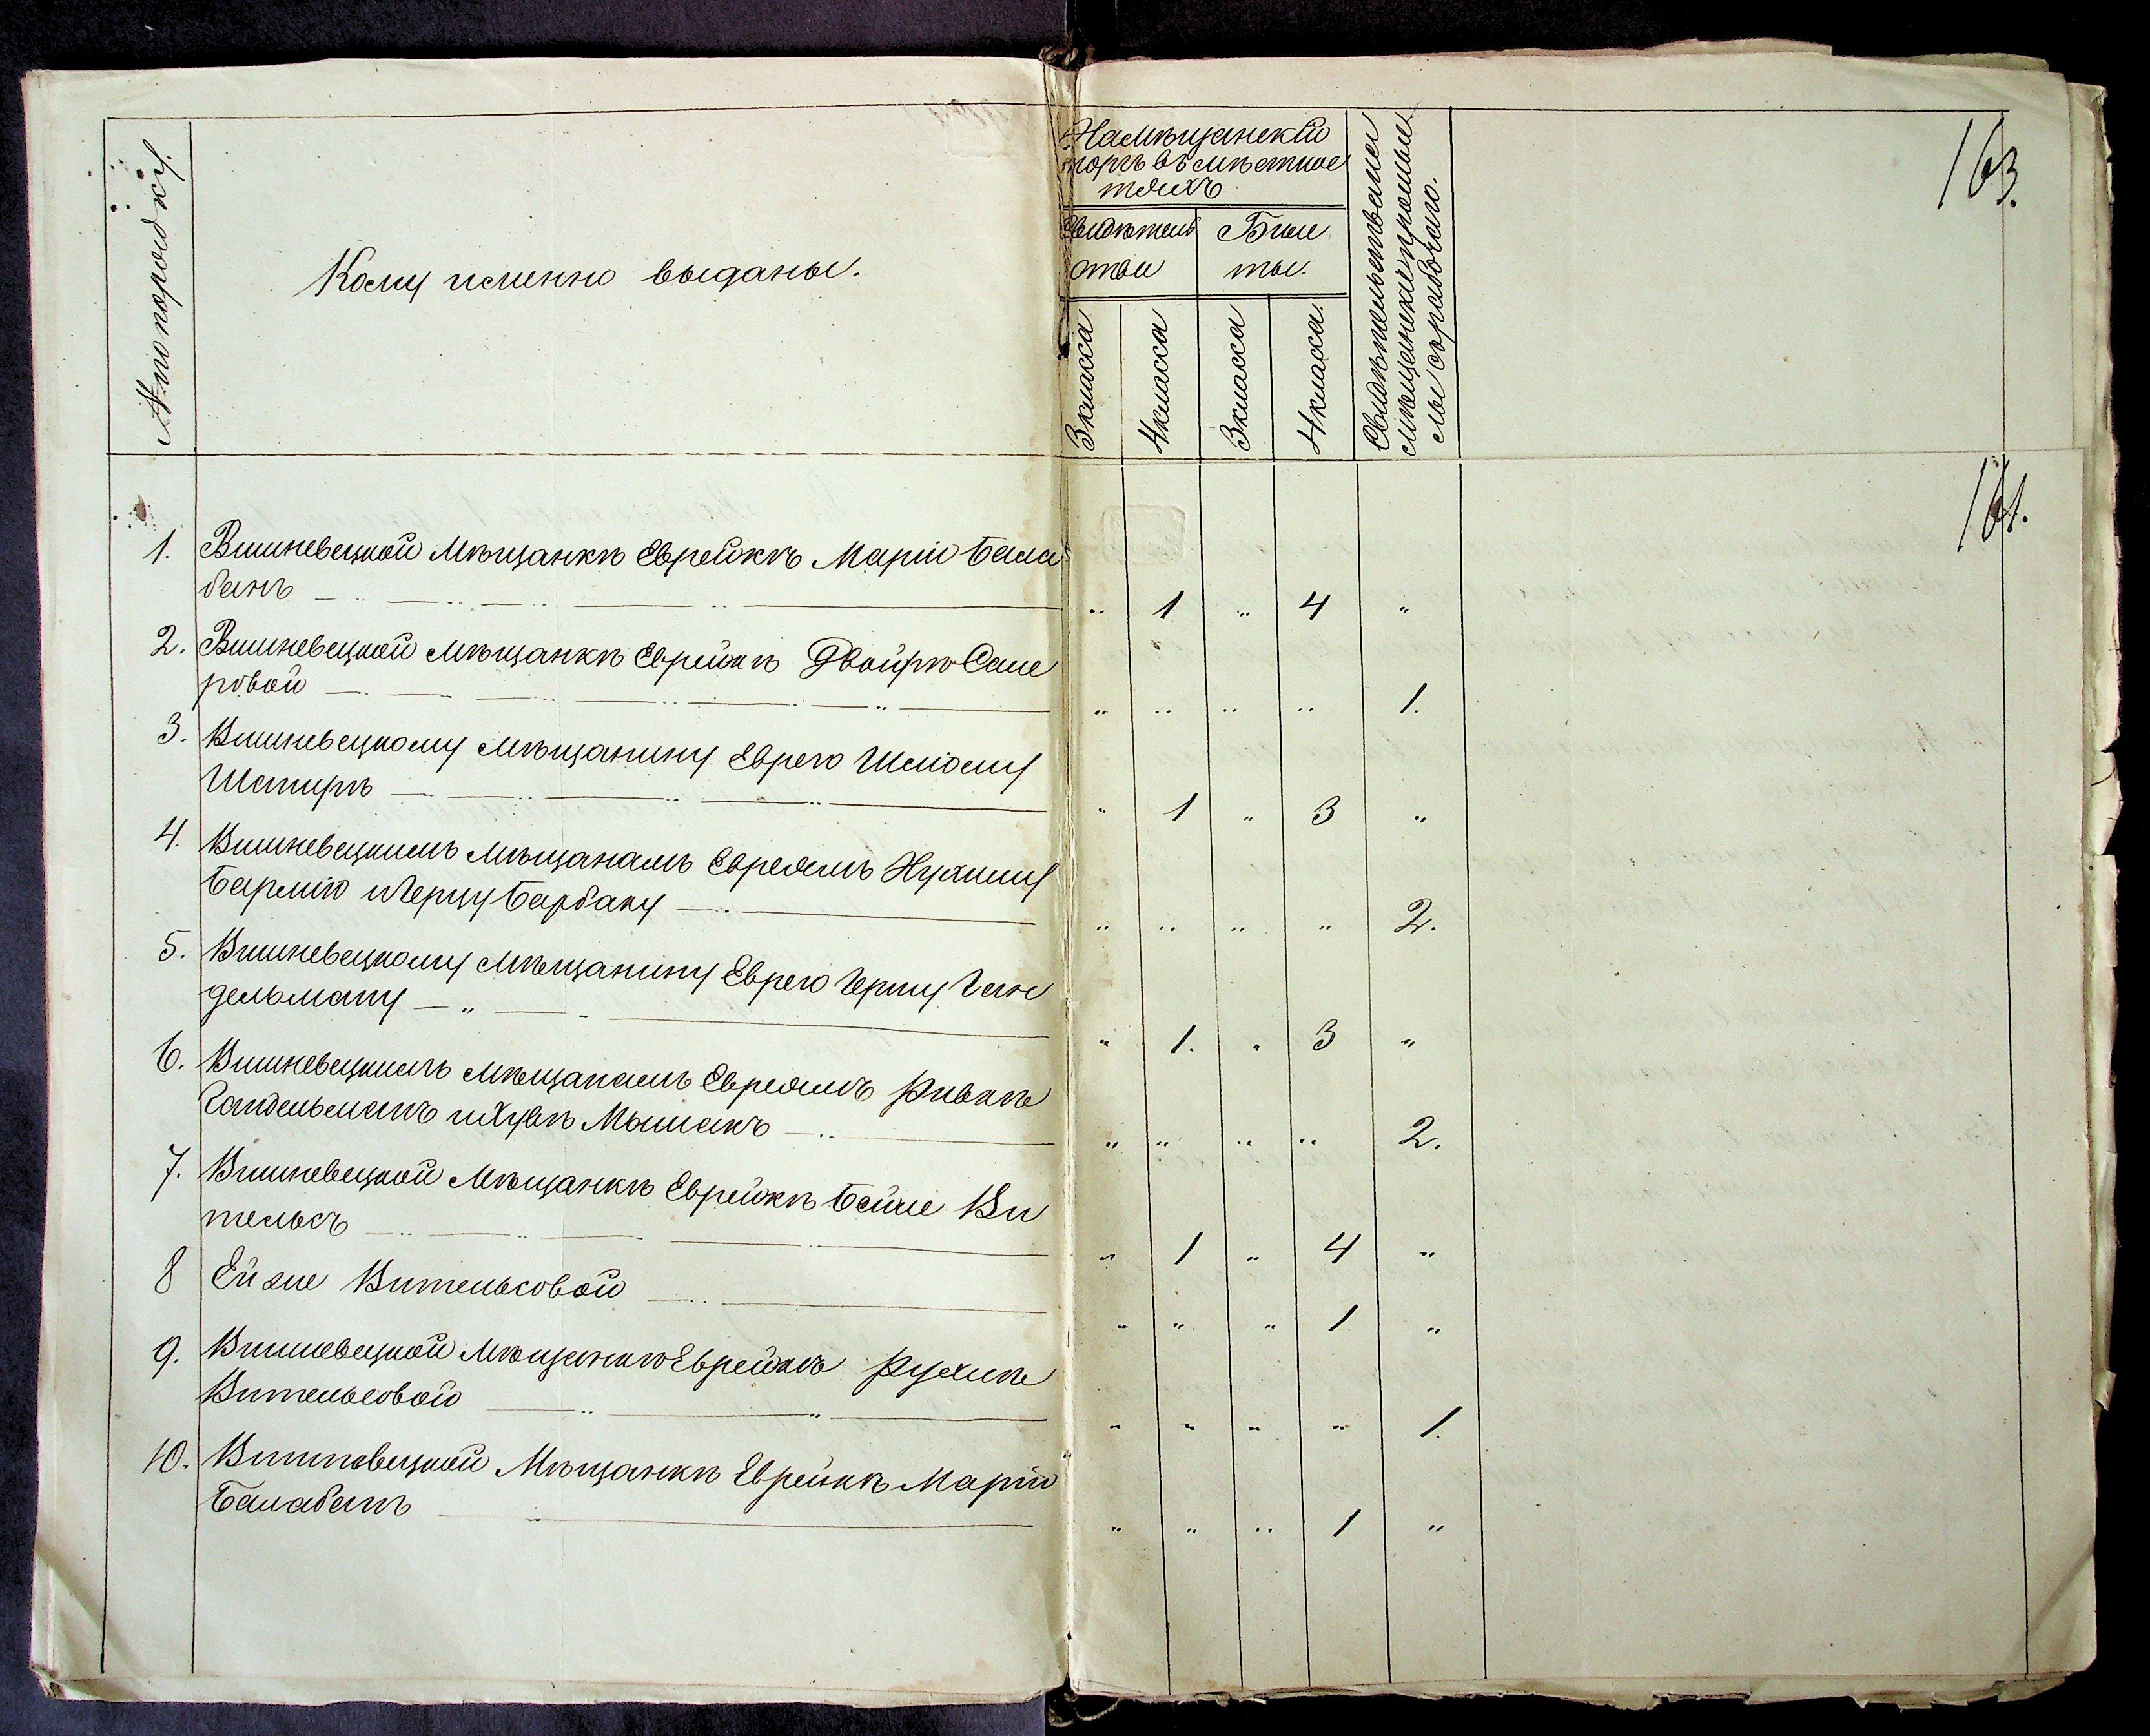 № по порядку.
Кому именно выданы.
На мѣщанскій
торгъ въ мѣстнос
тяхъ
Свидѣтель
ства
Биле
ты.
3 класса
4 класса
3 класса
4 класса.
Свидѣтельства на
мѣщанскіе промыс
лы
163.
161.
1. Вишневецкой Мѣщанкѣ Еврейкѣ Маріи Бала
банъ
" 1 " 4 "
2. Вишневецкой Мѣщанкѣ Еврейкѣ Двойрѣ Сале
ровой
" " " " 1.
3. Вишневецкому Мѣщанину Еврею Шліому
Шпиръ
" 1 " 3 "
4. Вишневецкимъ Мѣщанамъ Евреямъ Нухиму
и Герцу Барбаку
" " " " 2.
5. Вишневецкому Мѣщанину Еврею Герцу Ган
дельману
" 1. " 3 "
6. Вишневецкимъ Мѣщанамъ Евреямъ Ривкѣ
Гандельманъ и Хувѣ
" " " " 2.
7. Вишневецкой Мѣщанкѣ Еврейкѣ Бейле Ви
тельсъ
" 1 " 4 "
8 Ей же Вительсовой
" " " 1 "
9. Вишневецкой Мѣщанкѣ Еврейкѣ Рухлѣ
Вительсовой
" " " " 1.
10. Вишневецкой Мѣщанкѣ Еврейкѣ Маріи
Балабанъ
" " " 1 "